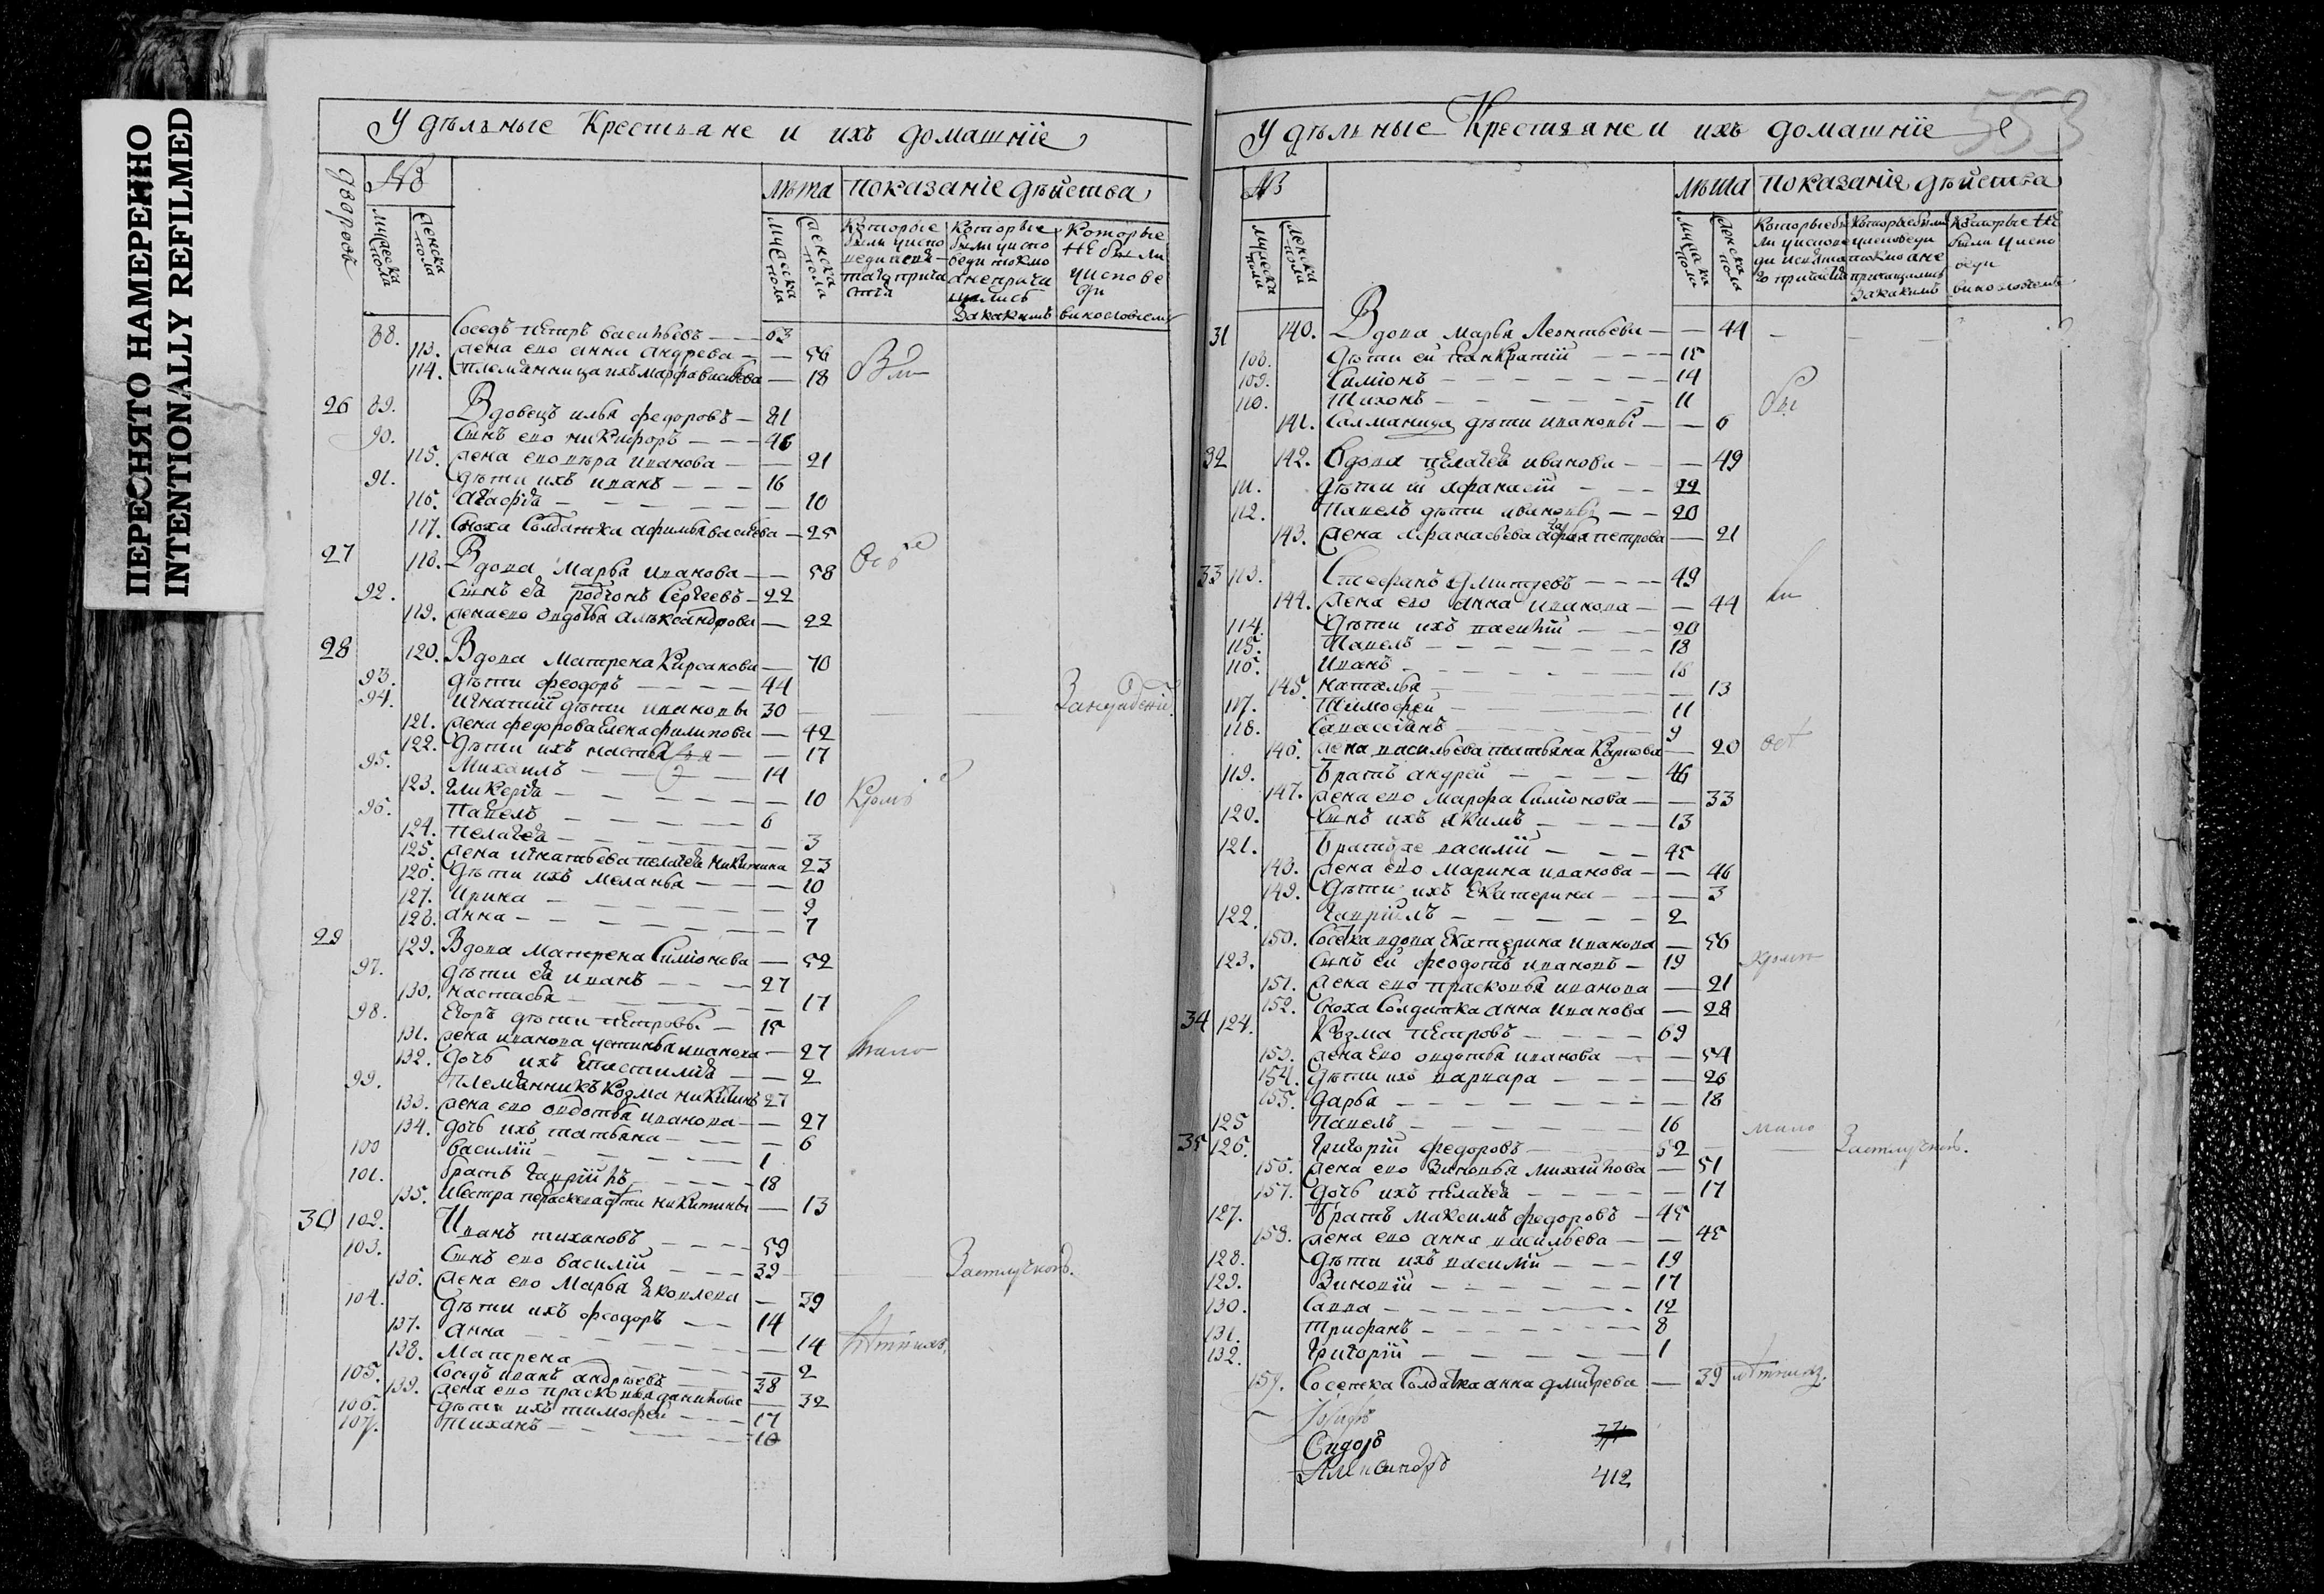 ПЕРЕСНЯТО НАМЕРЕННО
INTENTIONALLY REFILMED
Удѣльные Крестьяне и ихъ домашнїе
дворовъ № лѣта показанїе дѣйства
мужеска пола женска пола мужеска пола женска пола
Которые были у исповеди и у святаго причастїя
Которые были у исповеди токмо а не причащались и за какимъ винословиемъ
Которые не были у исповеди
88. Соседъ петръ васильевъ — 63
113. жена ево анна андреева — 56
114. племянница ихъ марфа васильева — 18
26 89. Вдовецъ илья федоровъ — 81
90. Сынъ ево никифоръ — 46
115. жена ево вѣра иванова — 21
91. дѣти ихъ иванъ — 16
116. агафїя — 10
117. Сноха Солдатка афимья васильева — 25
27 118. Вдова Марья иванова — 58
92. Сынъ ея родїонъ Сергеевъ — 22
119. жена ево овдотья александрова — 22
28 120. Вдова Матрена Кирсанова — 70
93. дѣти феодоръ — 44
94. игнатий дѣти ивановы 30
121. жена федорова елена филипова — 42
122. дѣти ихъ настасья — 17
95. Михаилъ — 14
123. гликерїя — 10
96. павелъ — 6
124. пелагея — 3
125. жена игнатьева пелагея никитина 23
126. дѣти ихъ меланья — 10
127. ирина — 9
128. анна — 7
29 129. Вдова Матрена Симїонова — 52
97. дѣти ея иванъ — 27
130. настасья — 17
98. Егоръ дѣти петровы — 15
131. жена иванова устинья иванова — 27
132. дочь ихъ — 2
99. племянникъ Козма никитинъ 27
133. жена ево овдотья иванова — 27
134. дочь ихъ татьяна — 6
100 василїй — 1
101. братъ гаврїилъ — 18
135. и сестра параскева дѣти никитины — 13
30 102. Иванъ тихановъ — 59
103. Сынъ ево василїй — 39
136. жена ево Марья яковлева — 39
104. дѣти ихъ феодоръ — 14
137. анна — 14
138. Матрена — 2
105. Соседъ иванъ андрѣевъ — 38
139. жена ево прасковья данилова — 32
106. дѣти ихъ тимофей — 17
107. тиханъ — 10
553
Удѣльные Крестьяне и ихъ домашнїе
№ лѣта показанїе дѣйства
мужеска пола женска пола мужеска пола женска пола
Которые были у исповеди и у святаго причастїя
Которые были у исповеди токмо а не причащались и за какимъ
Которые не были у исповеди винословиемъ
31 140. Вдова марья Леонтьева — 44
108. дѣти ей панкратїй — 15
109. Симїонъ — 14
110. Тихонъ — 11
141. Саламанида дѣти ивановы — 6
32 142. Вдова пелагея иванова — 49
111. дѣти ей афанасїй — 22
112. павелъ дѣти ивановы — 20
143. жена афанасьева петрова — 21
33 113. Стефанъ дмитревъ — 49
144. жена ево анна иванова — 44
114. дѣти ихъ василїй — 20
115. павелъ — 18
116. иванъ — 16
145. наталья — 13
117. тимофей — 11
118. 9
146. жена васильева татьяна Карпова — 20
119. братъ андрей — 46
147. жена ево марфа Симїонова — 33
120. Сынъ ихъ якимъ — 13
121. братъ же василїй — 45
148. жена ево Марина иванова — 46
149. дѣти ихъ Екатерина — 3
122. гаврїилъ — 2
150. Соседка вдова Екатерина иванова — 56
123. Сынъ ей феодотъ ивановъ — 19
151. жена ево прасковья иванова — 21
152. Сноха Солдатка анна иванова — 28
34 124. Козма петровъ — 69
153. жена ево овдотья иванова — 54
154. дѣти ихъ варвара — 26
155. дарья — 18
125 павелъ — 16
35 126. григорїй федоровъ — 52
156. жена ево Зиновья михайлова — 51
157. дочь ихъ пелагея — 17
127. братъ максимъ федоровъ — 45
158. жена ево анна васильева — 45
128. дѣти ихъ василїй — 19
129. Зиновїй — 17
130. Савва — 12
131. трифанъ — 8
132. григорїй — 1
159. Соседка Солдатка анна дмитрева — 39
Сидоръ
Александръ 412